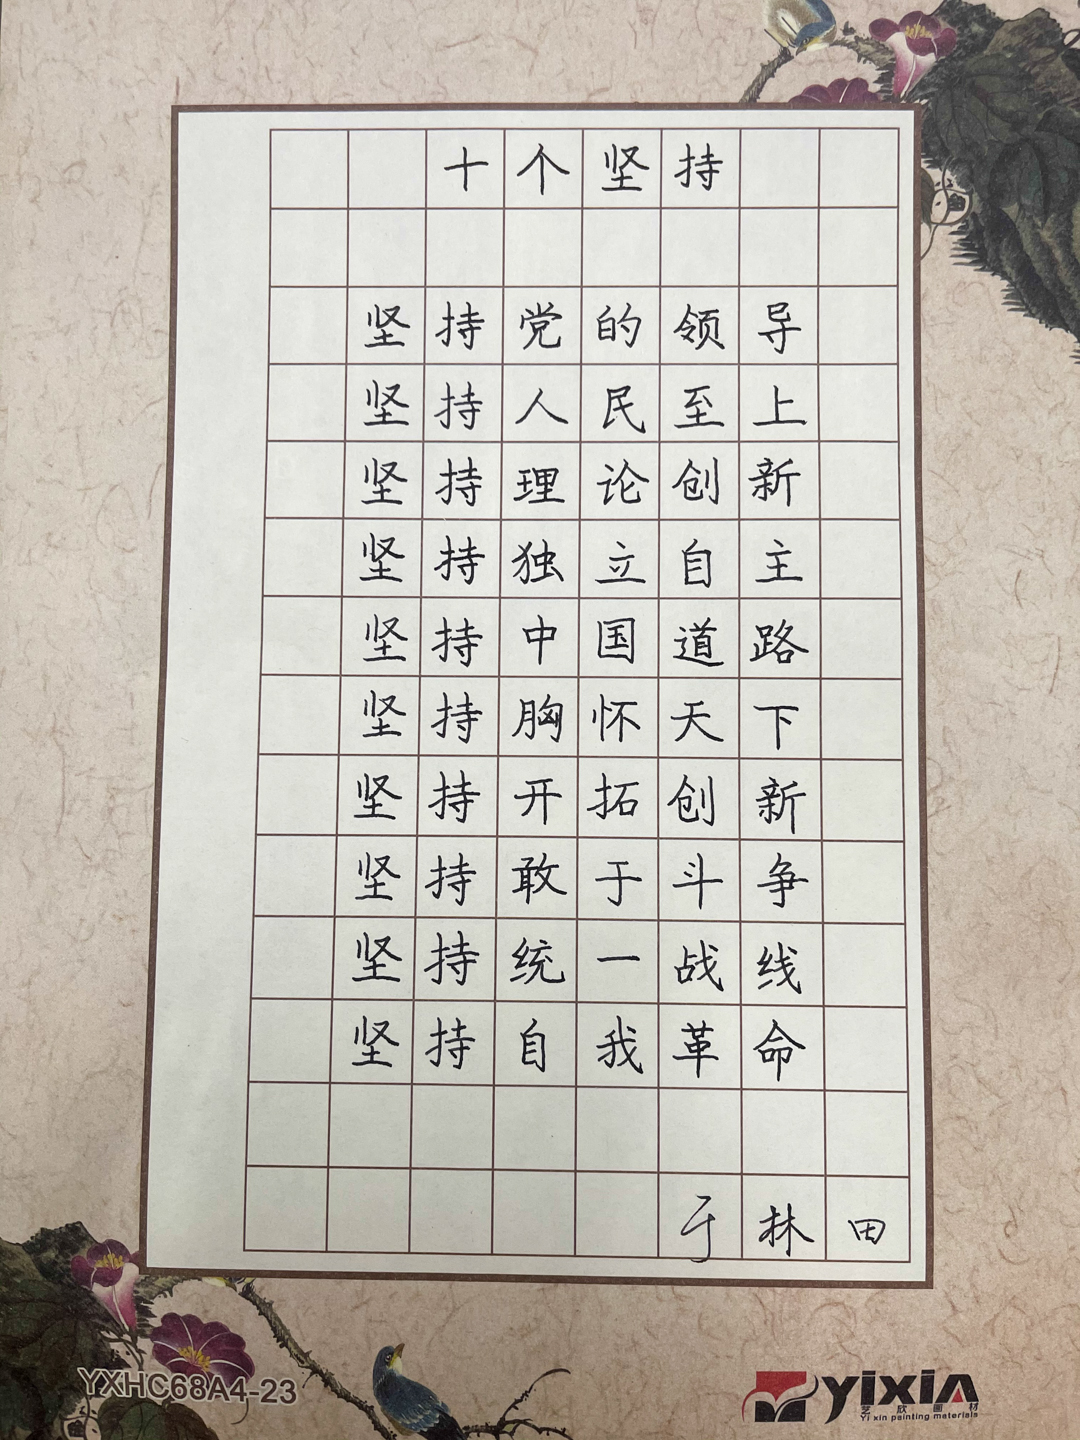 十个坚持
坚持党的领导
坚持人民至上
坚持理论创新
坚持独立自主
坚持中国道路
坚持胸怀天下
坚持开拓创新
坚持敢于斗争
坚持统一战线
坚持自我革命
于林田
YXHC68A4-23
yixin
艺欣画材
Yi xin painting materials